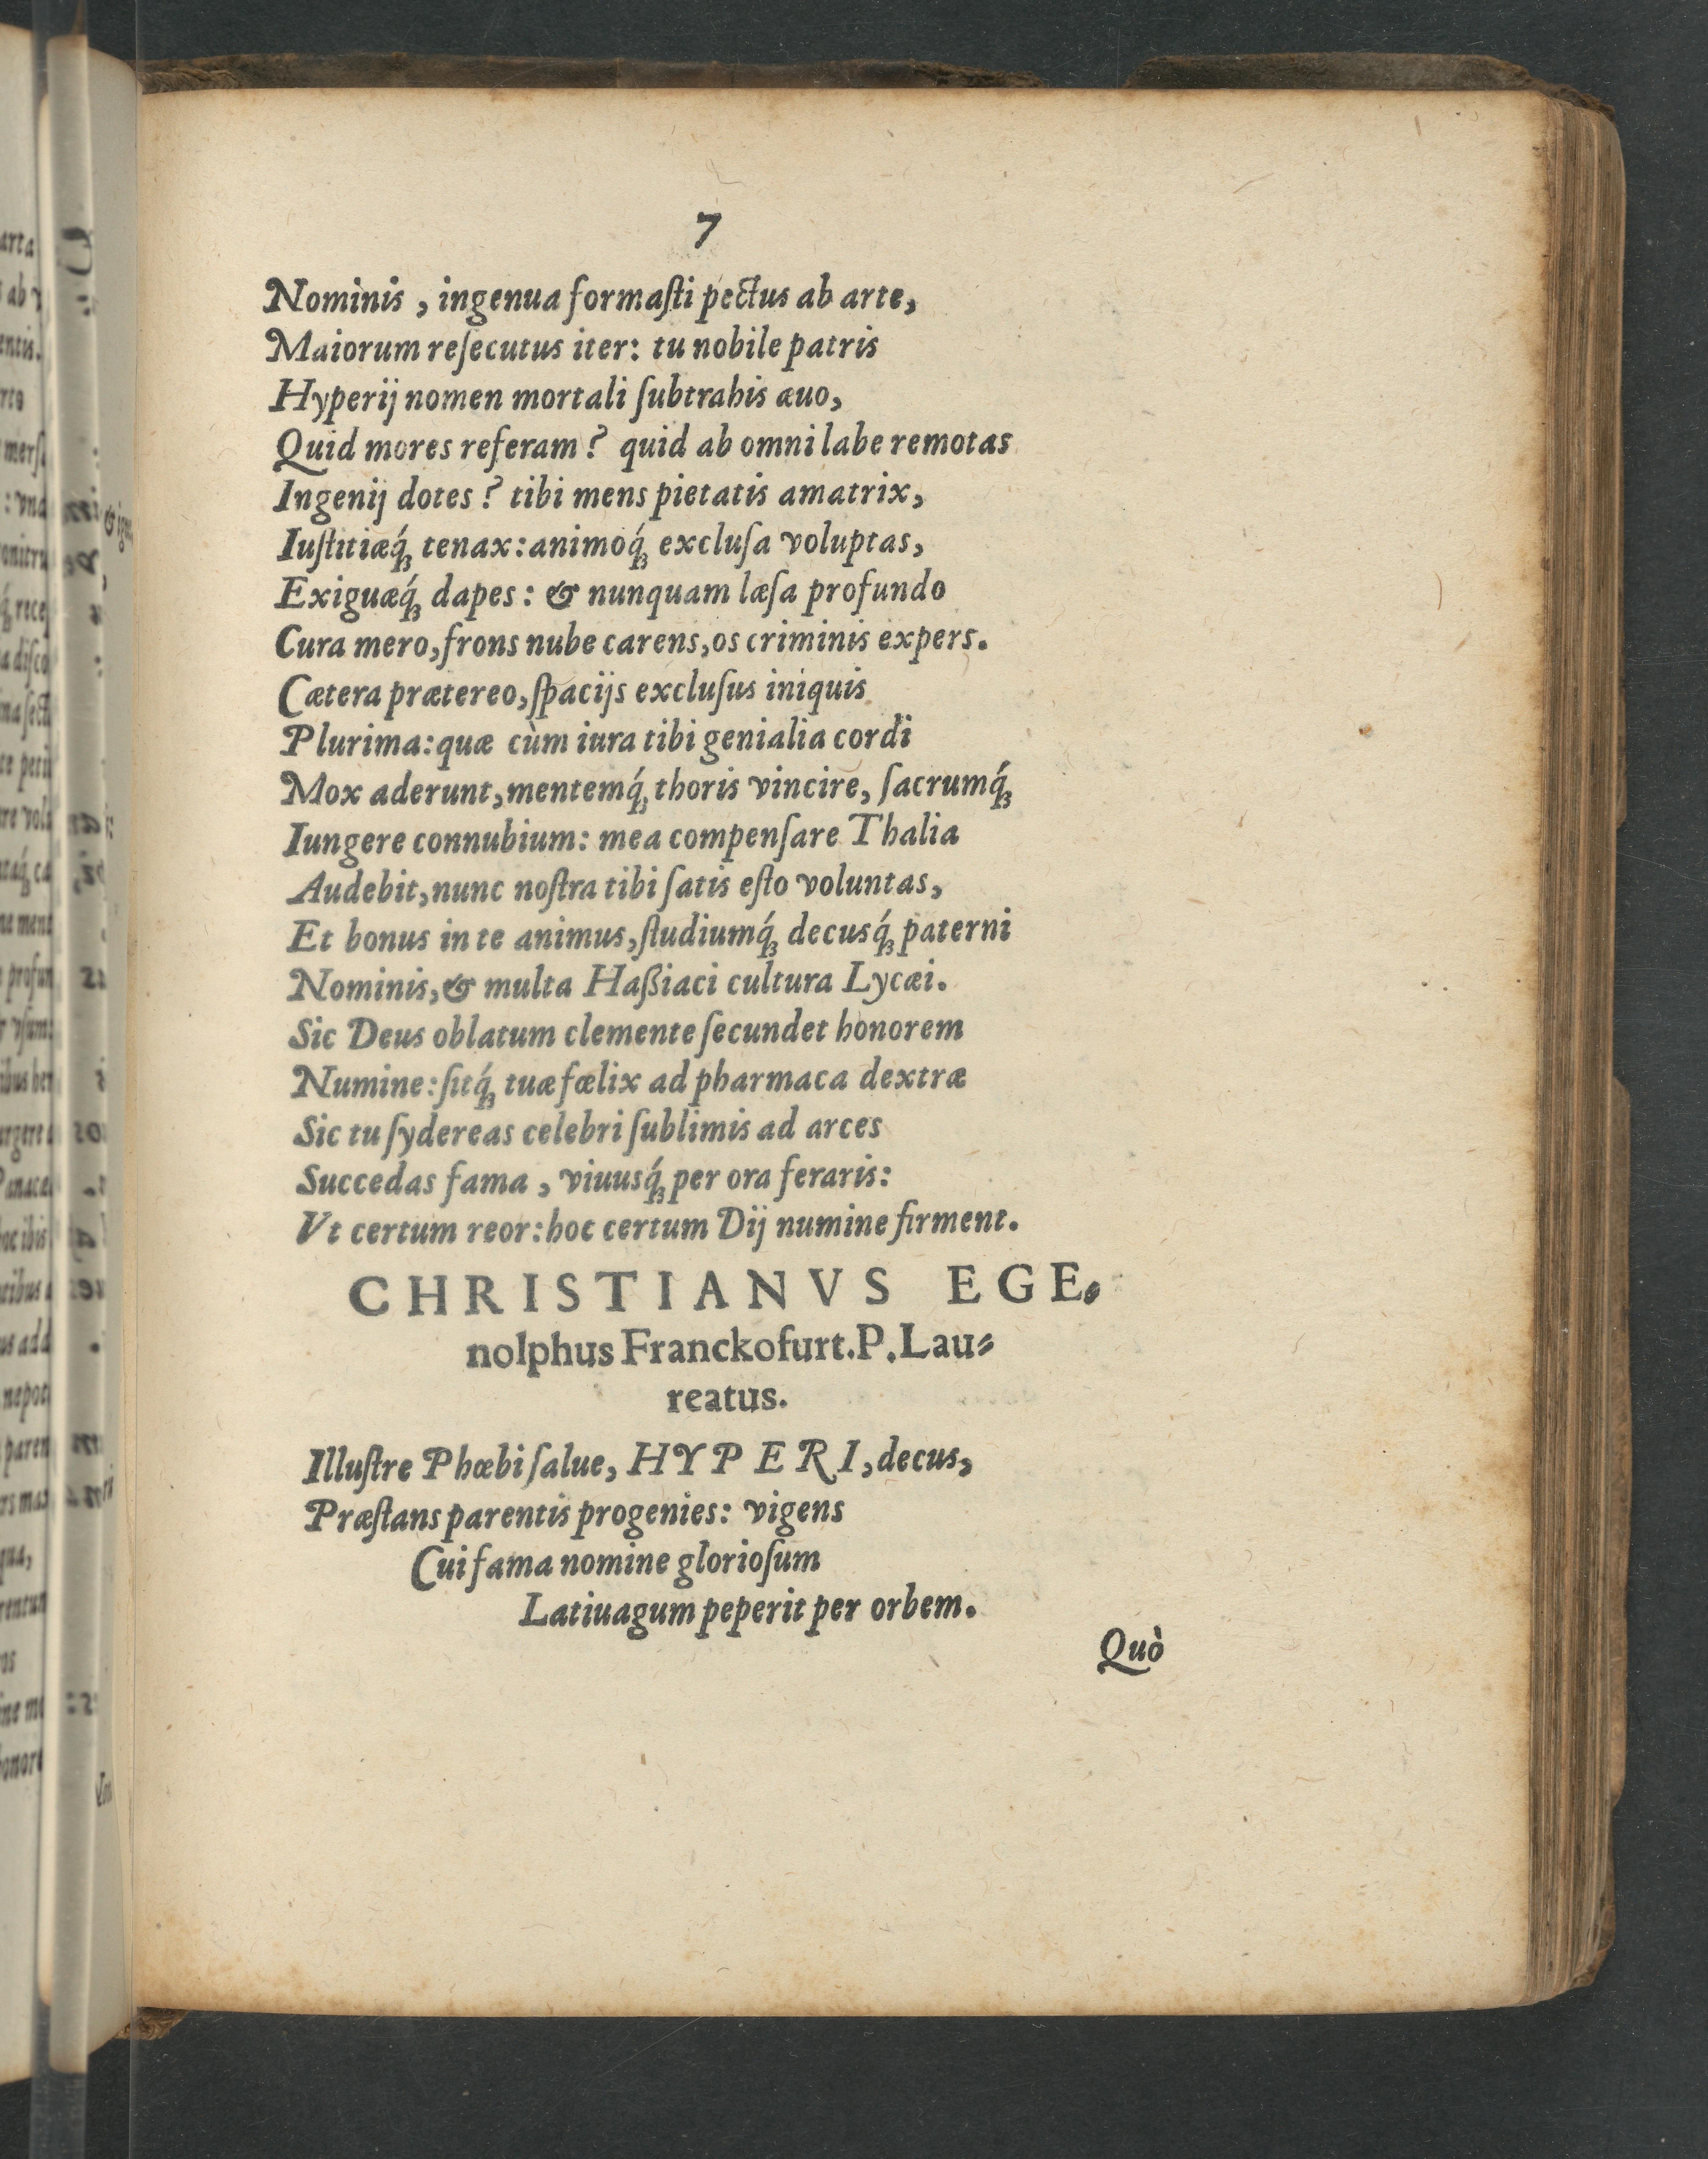 7
Nominis, ingenua formaſti pectus ab arte,
Maiorum reſecutus iter: tu nobile patris
Hyperij nomen mortali ſubtrahis æuo,
Quid mores referam? quid ab omni labe remotas
Ingenij dotes? tibi mens pietatis amatrix,
Iuſtitiæq́ꝫ tenax: animoq́ꝫ excluſa voluptas,
Exiguæq́ꝫ dapes: & nunquam læſa profundo
Cura mero, frons nube carens, os criminis expers.
Cætera prætereo, ſpacijs excluſus iniquis
Plurima: quæ cùm iura tibi genialia cordi
Mox aderunt, mentemq́ꝫ thoris vincire, ſacrumq́ꝫ
Iungere connubium: mea compenſare Thalia
Audebit, nunc noſtra tibi ſatis eſto voluntas,
Et bonus in te animus, ſtudiumq́ꝫ decusq́ꝫ paterni
Nominis, & multa Haßiaci cultura Lycæi.
Sic Deus oblatum clemente ſecundet honorem
Numine: ſitq́ꝫ tuæ fœlix ad pharmaca dextræ
Sic tu ſydereas celebri ſublimis ad arces
Succedas fama, viuusq́ꝫ per ora feraris:
Vt certum reor: hoc certum Dij numine firment.
CHRISTIANVS EGE⸗
nolphus Franckofurt. P. Lau⸗
reatus.
Illuſtre Phœbi ſalue, HYPERI, decus,
Præſtans parentis progenies: vigens
Cui fama nomine glorioſum
Latiuagum peperit per orbem.
Quò